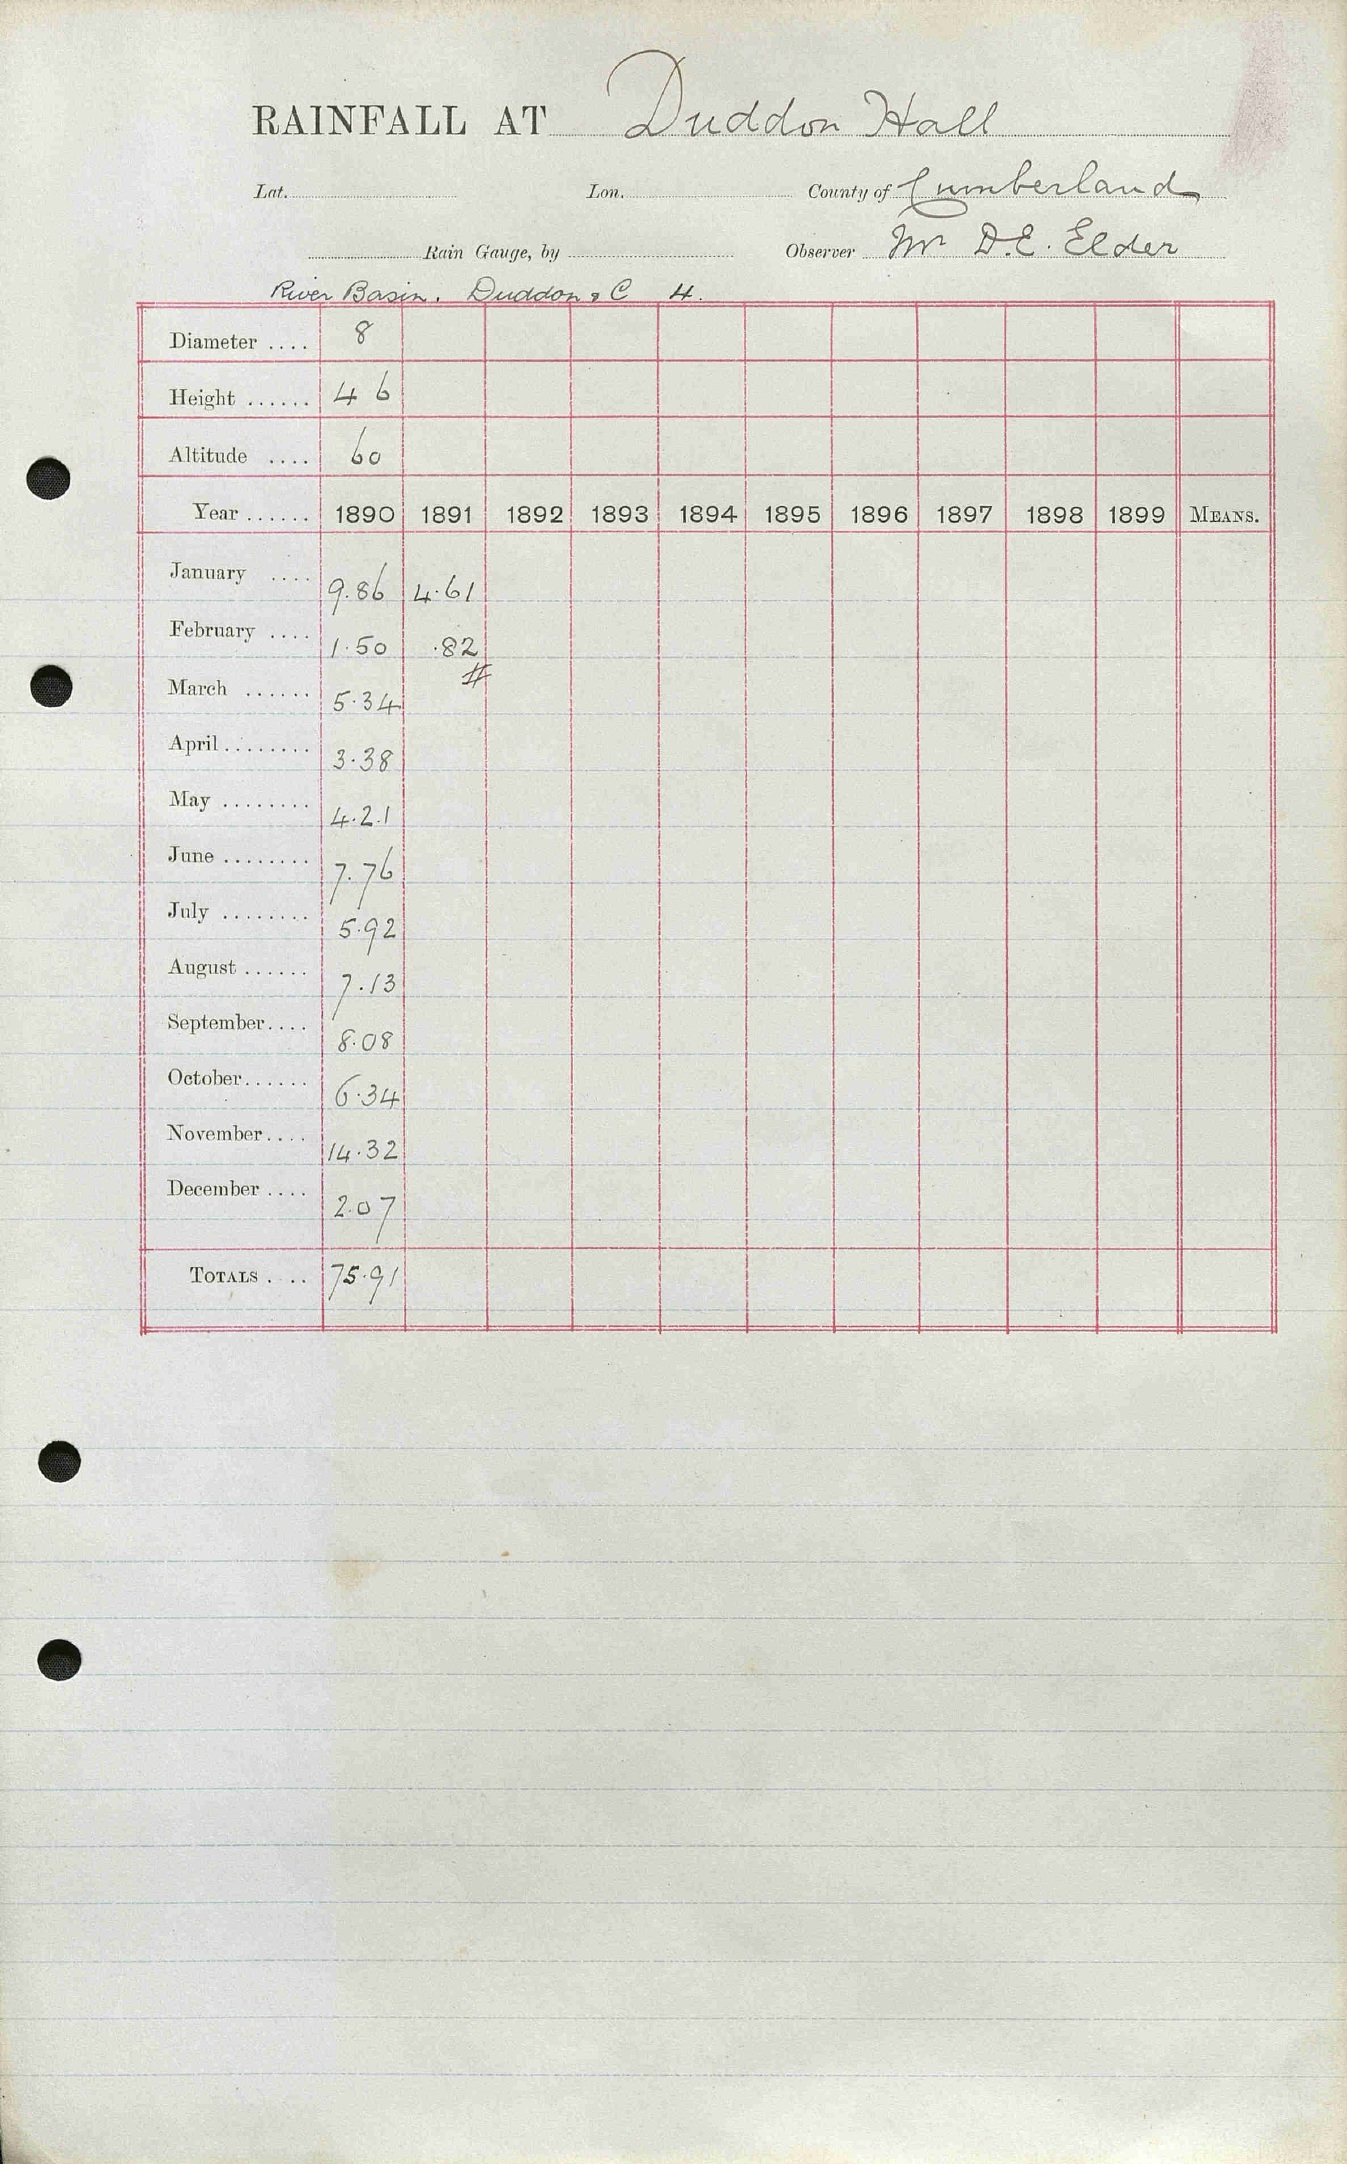 RAINFALL AT Duddon Hall
Lat. Lon. County of Cumberland
Rain Gauge, by Observer Mr D.E. Elder
River Basin. Duddon & C 4.
Diameter .... 8
Height ...... 4 6
Altitude .... 60
Year ...... 1890 1891 1892 1893 1894 1895 1896 1897 1898 1899 MEANS.
January .... 9.86 4.61
February .... 1.50 .82
March ...... 5.34 #
April ........ 3.38
May ........ 4.21
June ........ 7.76
July ........ 5.92
August ...... 7.13
September .... 8.08
October ...... 6.34
November .... 14.32
December .... 2.07
TOTALS .... 75.91